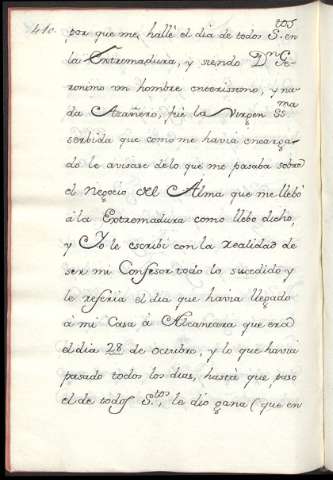 410.
por que me hallè el dia de todos S.tos en
la Extremadura, y siendo D.n Ge-
ronimo un hombre enterisimo, y na-
da Azañero, fue la Virgen SS.ma
serbida que como me havia encarga-
do le avisase de lo que me pasaba sobre
el Negocio del Alma que me llebó
á la Extremadura como llebo dicho,
y Yo le escribi con la realidad de
ser mi Confesor todo lo sucedido y
le referia el dia que havia llegado
á mi Casa à Alcantara que era
el dia 28 de octubre, y lo que havia
pasado todos los dias, hasta que pasò
el de todos S.tos, le dio gana (que en